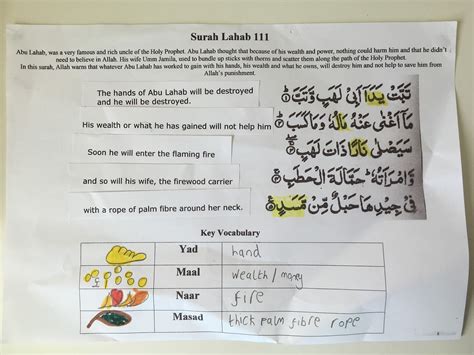 Surah Lahab 111
Abu Lahab, was a very famous and rich uncle of the Holy Prophet. Abu Lahab thought that because of his wealth and power, nothing could harm him and that he didn't
need to believe in Allah. His wife Umm Jamila, used to bundle up sticks with thorns and scatter them along the path of the Holy Prophet.
In this surah, Allah warns that whatever Abu Lahab has worked to gain with his hands, his wealth and what he owns, will destroy him and not help to save him from
Allah's punishment.
The hands of Abu Lahab will be destroyed
and he will be destroyed.
تَبَّتْ يَدَآ اَبِىْ لَهَبٍ وَّتَبَّ ۝١
His wealth or what he has gained will not help him
مَآ اَغْنٰى عَنْهُ مَالُهٗ وَمَا كَسَبَ ۝٢
Soon he will enter the flaming fire
سَيَصْلٰى نَارًا ذَاتَ لَهَبٍ ۝٣
and so will his wife, the firewood carrier
وَّامْرَاَتُهٗ ؕ حَمَّالَةَ الْحَطَبِ ۝٤
with a rope of palm fibre around her neck.
فِىْ جِيْدِهَا حَبْلٌ مِّنْ مَّسَدٍ ۝٥
Key Vocabulary
Yad hand
Maal wealth / money
Naar fire
Masad thick palm fibre rope